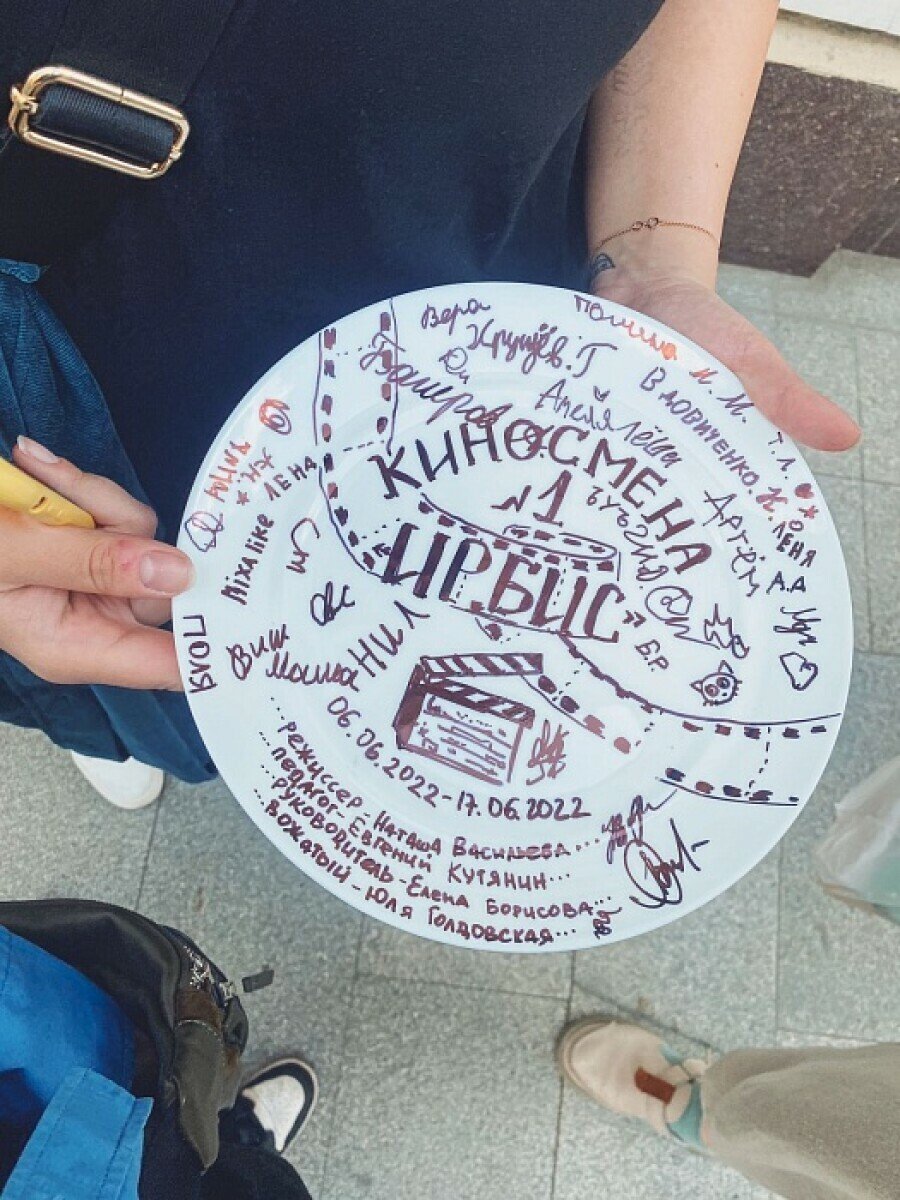 Вера
Хрущёв.Г
Полина
М.М.
Т.Л.
Башеров
Юи
Вдовиченко.К
Лёня
А.А
Артём
КИНОСМЕНА
№1
"ИРБИС"
Б.Р.
Юлик
ЛЕНА
Mixalike
Виш
Маша
НИЛ
06.06.2022-17.06.2022
...режиссер-Наташа Васильева...
...педагог-Евгений Кутянин...
...руководитель-Елена Борисова...
...вожатый-Юля Голдовская...